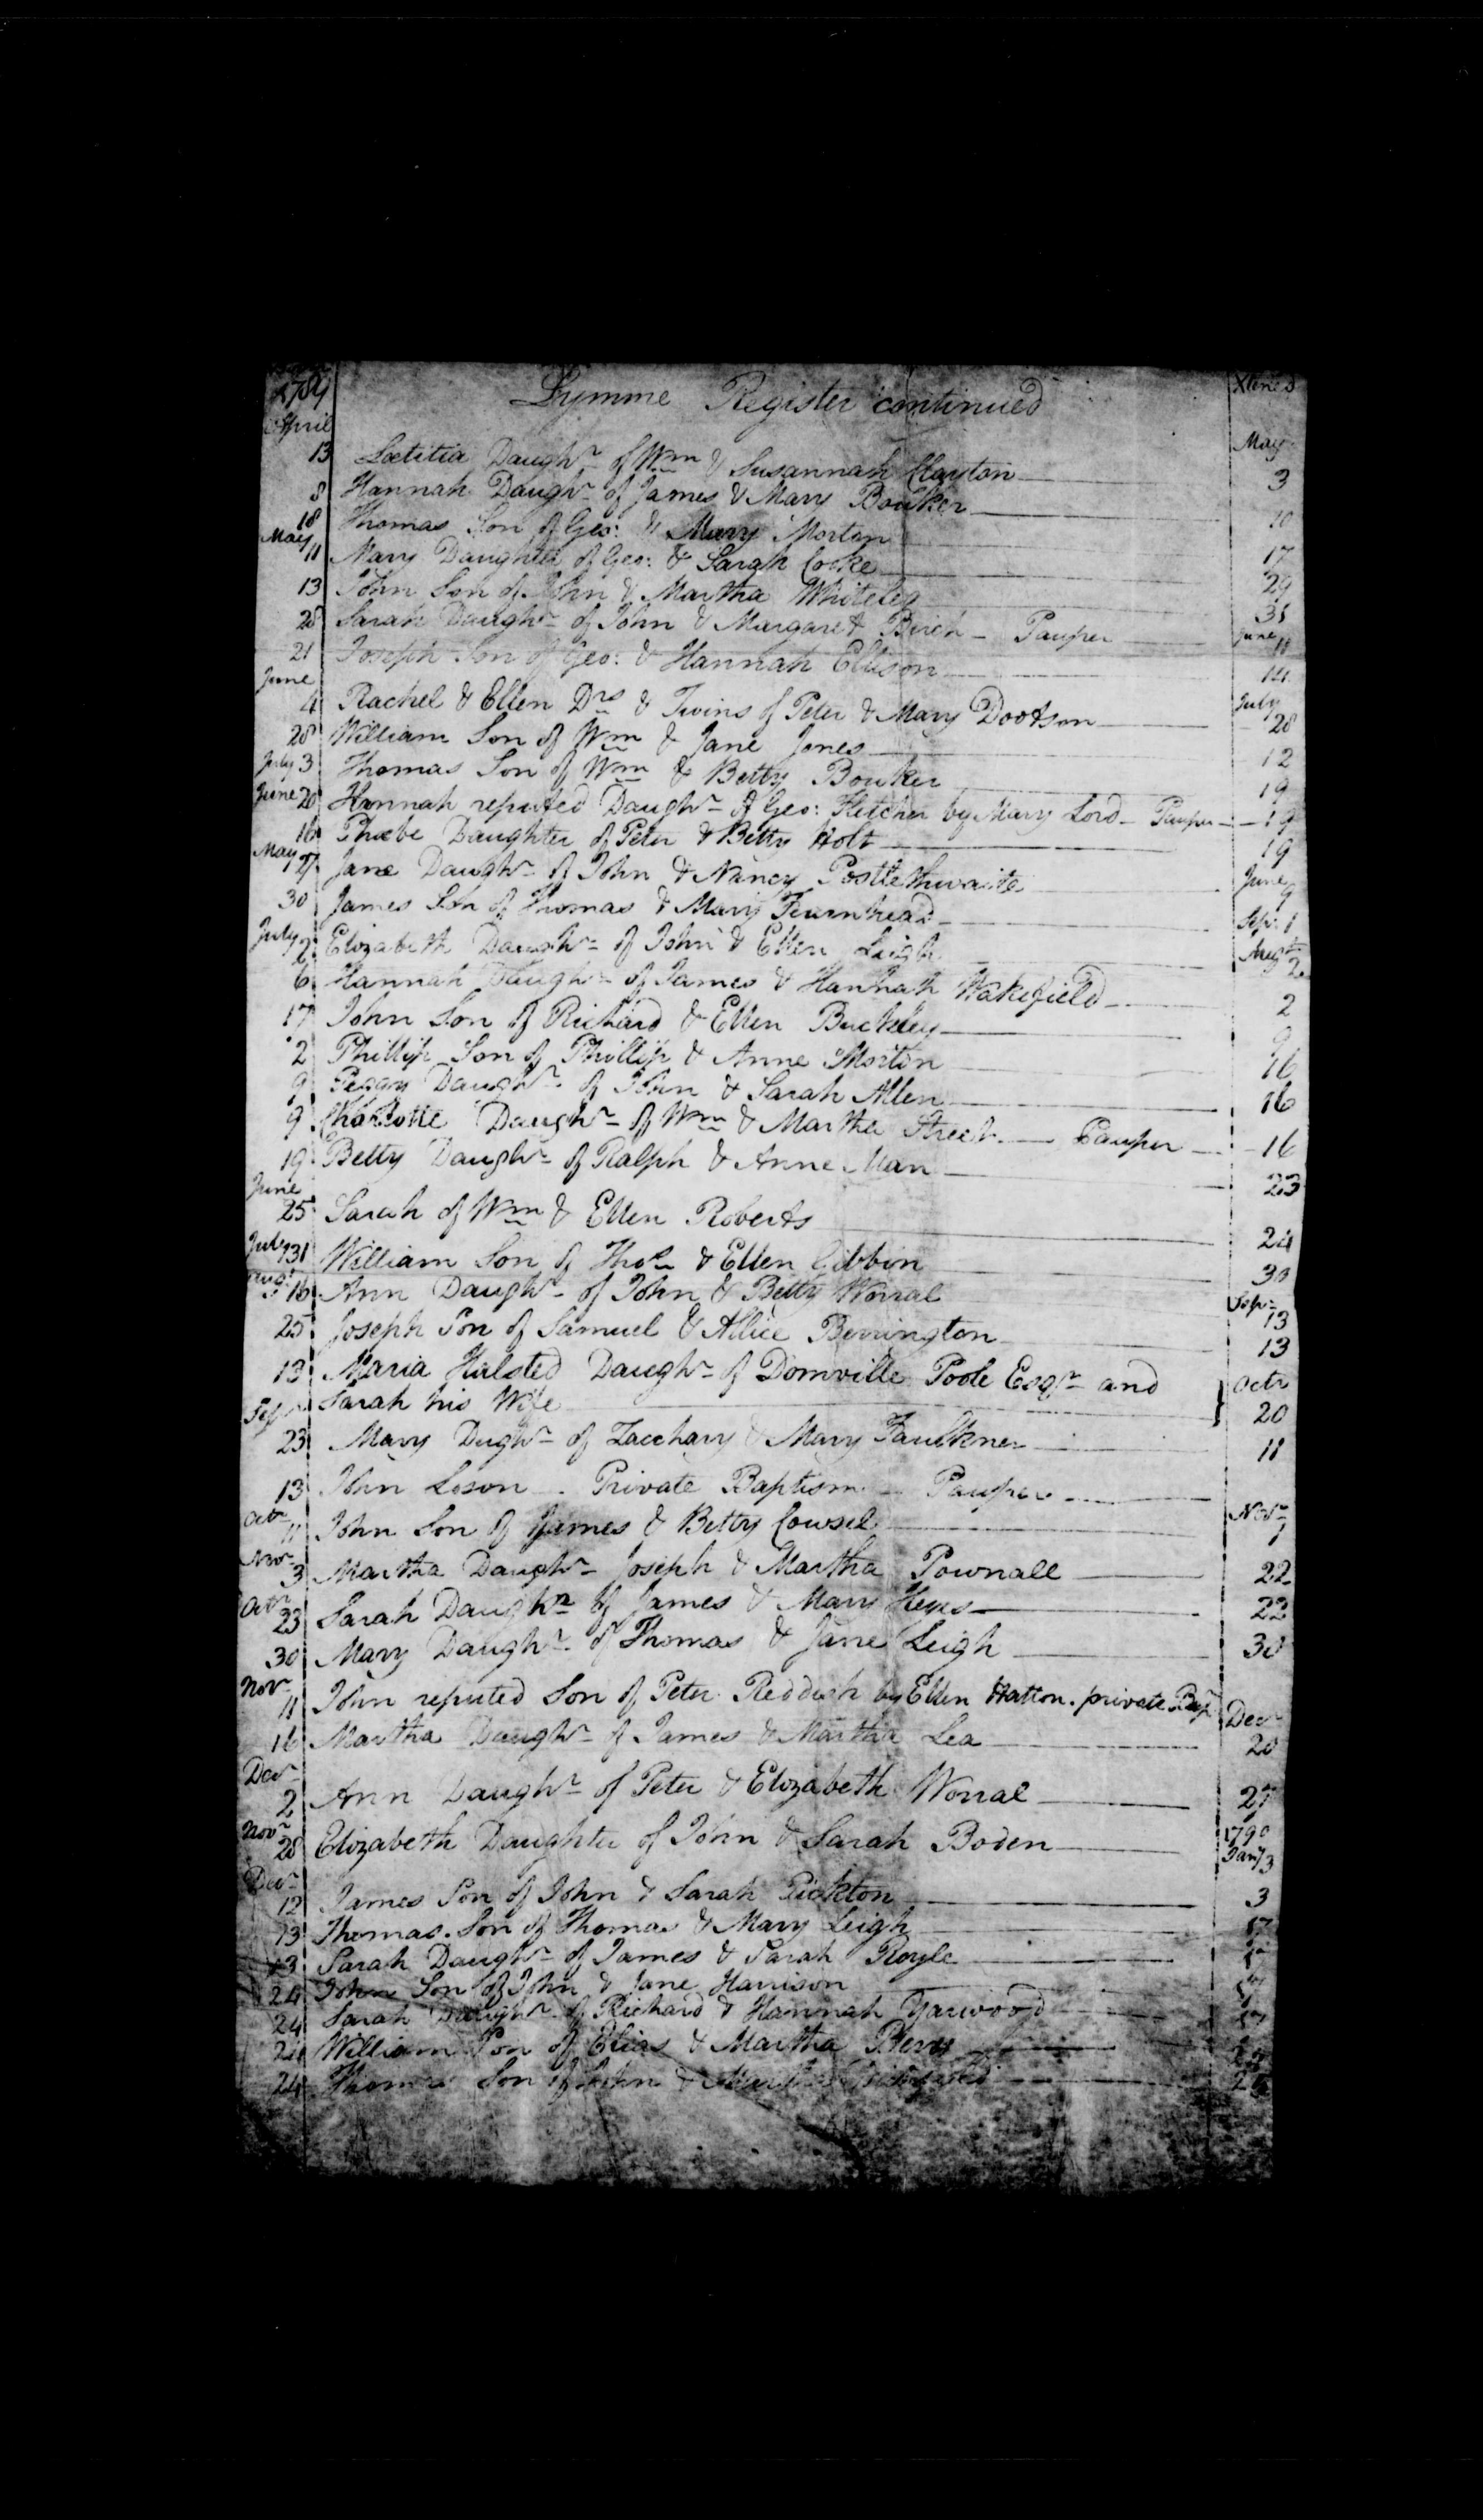 1789 Lymme Register continued Xtened
April May
13 Lætitia Daughr of Wm & Susannah Clayton 3
8 Hannah Daughr of James & Mary Bouker 10
18 Thomas Son of Geo: & Mary Morton 17
May 11 Mary Daughter of Geo: & Sarah Cooke 29
13 John Son of John & Martha Whiteleg 31
28 Sarah Daughr of John & Margaret Birch - Pauper June 11
21 Joseph Son of Geo: & Hannah Ellison 14
June 4 Rachel & Ellen Drs & Twins of Peter & Mary Dootson July 28
28 William Son of Wm & Jane Jones 12
July 3 Thomas Son of Wm & Betty Bouker 19
June 20 Hannah reputed Daughr of Geo: Fletcher by Mary Lord - Pauper 19
16 Phœbe Daughter of Peter & Betty Holt 19
May 27 Jane Daughr of John & Nancy Postlethwaite June 9
30 James Son of Thomas & Mary Fearnhead Sepr 1
July 2 Elizabeth Daughr of John & Ellen Leigh Augt 2
6 Hannah Daughr of James & Hannah Wakefield 2
17 John Son of Richard & Ellen Buckley 9
2 Phillip Son of Phillip & Anne Morton 16
9 Peggy Daughr of John & Sarah Allen 16
9 Charlotte Daughr of Wm & Martha Street - Pauper 16
19 Betty Daughr of Ralph & Anne Man 23
June 25 Sarah of Wm & Ellen Roberts 24
July 31 William Son of Thos & Ellen Gibbon 30
Augt 16 Ann Daughr of John & Betty Worral Sepr 13
25 Joseph Son of Samuel & Allice Berrington 13
13 Maria Halsted Daughr of Domville Poole Esqr and Octr
Sarah his Wife 20
Sepr 23 Mary Dughr of Zacchary & Mary Faulkner 11
13 John Leson - Private Baptism - Pauper
Octr 11 John Son of James & Betty Cowsel Novr 1
Novr 3 Martha Daughr Joseph & Martha Pownall 22
Octr 23 Sarah Daughr of James & Mary Heyes 22
30 Mary Daughr of Thomas & Jane Leigh 30
Novr 11 John reputed Son of Peter Reddish by Ellen Hatton. private Bap
16 Martha Daughr of James & Martha Lea Decr 20
Decr 2 Ann Daughr of Peter & Elizabeth Worral 27
Novr 28 Elizabeth Daughter of John & Sarah Boden 1790 Jany 3
Decr 12 James Son of John & Sarah Pickton 3
13 Thomas Son of Thomas & Mary Leigh 17
13 Sarah Daughr of James & Sarah Royle 17
24 John Son of John & Jane Harrison 17
24 Sarah Daughr of Richard & Hannah Yarwood 17
24 William Son of Elias & Martha Berry
24 Thomas Son of John & Martha